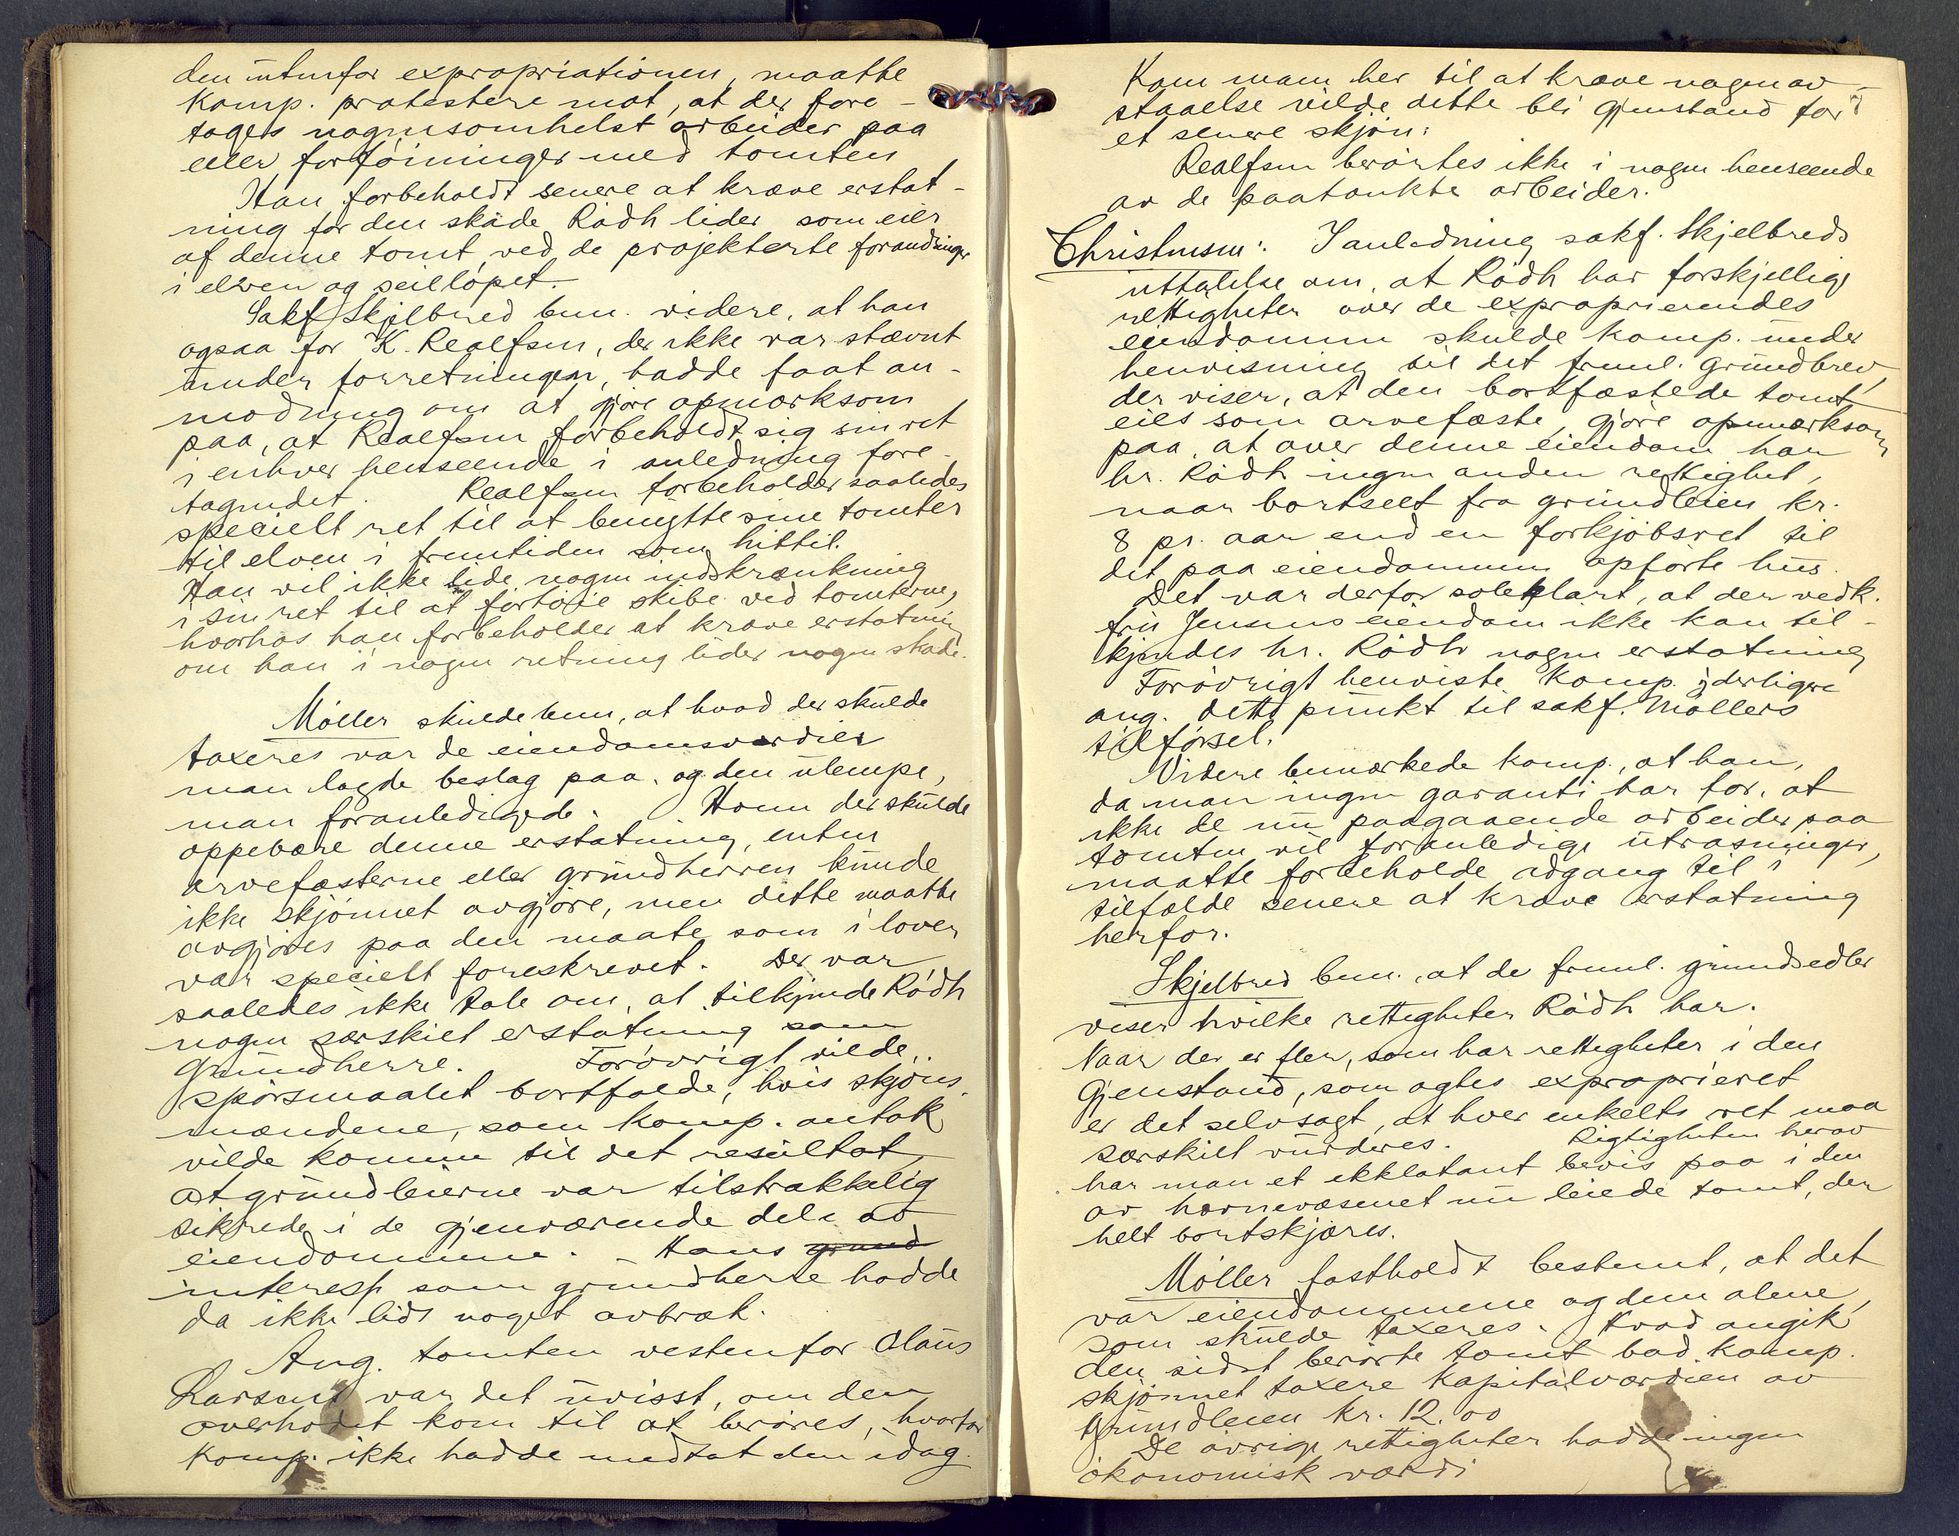 den utenfor expropriationen, maatte
Komp. protestere mot, at der fore-
toges nogensomhelst arbeider paa
eller forføininger med tomten
Han forbeholdt senere at kræve erstat-
ning for den skade Rådh lider som eier
af denne tomt ved de projekterte forandringer
i elven og seilløpet.
Sakf. Skjelbred bem. videre, at han
ogsaa for K. Realfsen, der ikke var stævnt
under forretningen, hadde faat an-
modning om at gjøre opmerksom
paa, at Realfsen forbeholdt sig sin ret
i enhver henseende i anledning fore-
tagendet. Realfsen forbeholder saaledes
specielt ret til at benytte sine tomter
til elven i fremtiden som hittil.
Han vil ikke lide nogen indskrænkning
i sin ret til at fortøie skibe ved tomterne,
hvorhos han forbeholder at kræve erstatning
om han i nogen retning lider nogen skade.
Møller skulde bem, at hvad der skulde
taxeres var de eiendomsværdier
man lagde beslag paa, og den ulempe,
man foranledigede. Hvem der skulde
oppebære denne erstatning, enten
arvefæsterne eller grundherren kunde
ikke skjønnet avgjøre, men dette maatte
avgjøres paa den maate som i loven
var specielt foreskrevet. Der var
saaledes ikke tale om, at tilkjende Rådh
nogen særskilt erstatning som
grundherre. Forøvrigt vilde
spørsmaalet bortfalde, hvis skjøns-
mændene, som komp. antok
vilde komme til det resultat,
at grundleierne var tilstrækkelig
sikrede i de gjenværende dele av
eiendommene. Hans grund
interesse som grundherre hadde
da ikke lidt noget avbræk.
Ang. tomten vestenfor Olaus
Larsens var det uvisst, om den
overhodet kom til at berøres, hvorfor
Komp. ikke hadde medtat den idag.
Kom man her til at kræve nogen av-
staaelse vilde dette bli gjenstand for
et senere skjøn.
Realfsen berørtes ikke i nogen henseende
av de paatænkte arbeider.
Christensen: I anledning sakf. Skjelbreds
uttalelse om, at Rådh har forskjellige
rettigheter over de exproprierendes
eiendomme skulde komp. under
henvisning til det freml. grundbrev,
der viser, at den bortfæstede tomt
eies som arvefæste, gjøre opmerksom
paa, at over denne eiendom har
hr. Rådh ingen anden rettighet,
naar bortseet fra grundleien kr.
8 pr. aar end en forkjøbsret til
det paa eiendommen opførte hus.
Det var derfor soleklart, at der vedk.
fru Jensens eiendom ikke kan til-
kjendes hr. Rådh nogen erstatning
Forøvrigt henviste Komp. yderligere
ang. dette punkt til sakf. Møllers
tilførsel.
Videre bemærkede komp., at han,
da man ingen garanti har for, at
ikke de nu paagaaende arbeider paa
tomten vil foranledige utrasninger,
maatte forbeholde adgang til i
tilfælde senere at kræve erstatning
herfor.
Skjelbred bem., at de freml. grundsedler
viser hvilke rettigheter Rådh har.
Naar der er flere, som har rettigheter i den
Gjenstand, som agtes exproprieret
er det selvsagt, at hver enkelts ret maa
særskilt vurderes. Rigtigheten herav
har man et eklatant bevis paa i den
av havnevæsenet nu leiede tomt, der
helt bortskjæres.
Møller fastholdt bestemt, at det
var eiendommene og dem alene,
som skulde taxeres. Hvad angik
den sidst berørte tomt bad komp.
skjønnet taxere Kapitalværdien av
Grundleien kr. 12.00
De øvrige rettigheter hadde ingen
økonomisk værdi